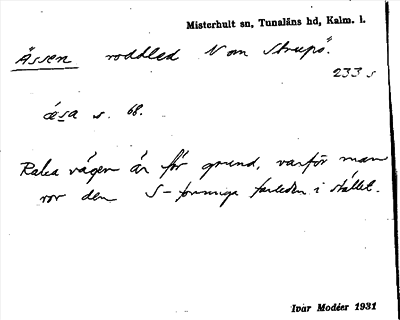 Misterhult sn, Tunaläns hd, Kalm. l.
Ässen roddled N om Strupö.
233 s
æsa s. 68.
Raka vägen är för grund, varför man
ror den S-formiga farleden i stället.
Ivar Modéer 1931